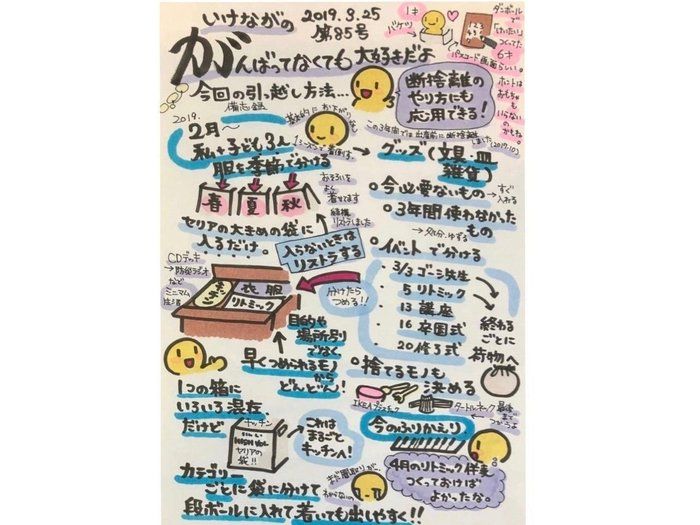 いけながの
2019.3.25
第85号
がんばってなくても大好きだよ
今回の引っ越し方法…
備忘録
1才
バケツ
ダンボールで
「けいたい」
つくってた
6才
パスコード画面らしい。
ホントは
おもちゃも
いらない
のかもね。
断捨離の
やり方にも
応用できる!
2019.
2月〜
私+子ども3人
服を季節で分ける
基本的に
おそろいを
よく
着せてます
春
夏
秋
結構
リストラしました
セリアの大きめの袋に
入るだけ。
入らないときは
リストラする
この3年間では出産前に断捨離しました(2017.10)
グッズ(文具・皿
雑貨)
今必要ないもの
→すぐ
入れる
3年間使わなかった
もの
→処分、ゆずる
イベントで分ける
3/3 ゴーシ先生
5 リトミック
13 講座
16 卒園式
20 修了式
終わる
ごとに
荷物へ
CDデッキ
→防災ラジオ
など
ミニマム
生活
衣服
リトミック
分けたら
つめる!!
目的や
場所別り
でなく
早くつめられるモノ
から
どんどん!
1つの箱に
いろいろ混在
だけど
キッチン
セリアの
袋!!
これは
まるごと
キッチンへ!
捨てるモノも
決める
IKEAプラスチック
タートルネック
最後
まで
つかうよ
今のふりかえり
4月のリトミック伴奏
つくっておけば
よかったな。
まだ間取りが…
わからないの
カテゴリー
ごとに袋に分けて
段ボールに入れて着いても出しやすく!!